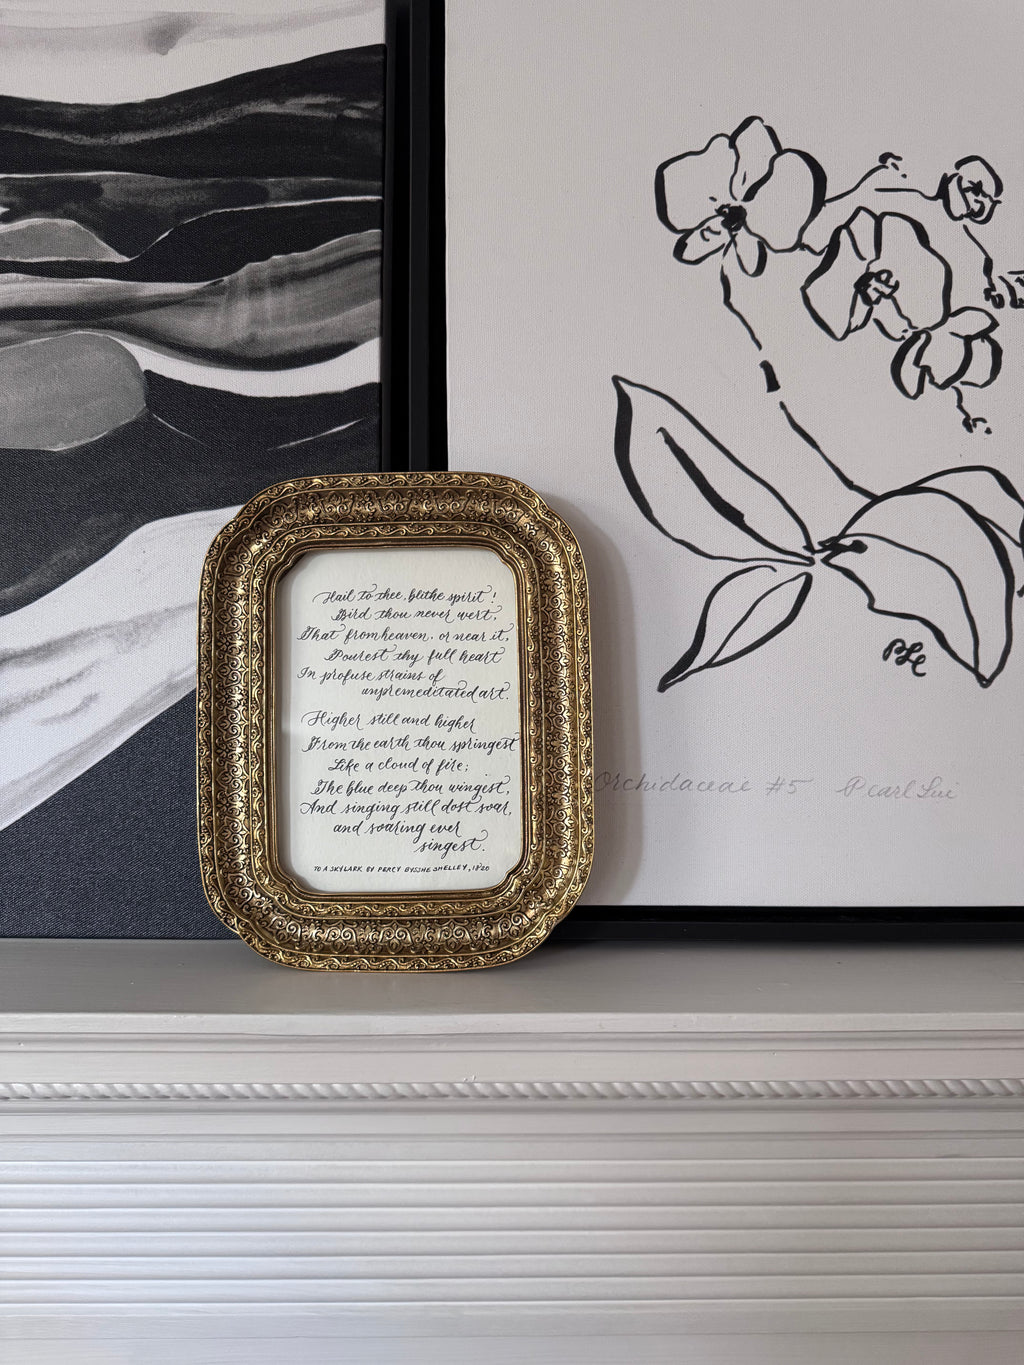 Hail to thee, blithe spirit!
Bird thou never wert,
That from heaven, or near it,
Pourest thy full heart
In profuse strains of
unpremeditated art.
Higher still and higher
From the earth thou springest
Like a cloud of fire;
The blue deep thou wingest,
And singing still dost soar,
and soaring ever
singest.
TO A SKYLARK BY PERCY BYSSHE SHELLEY, 1820
Orchidaceae #5 Pearl Lui